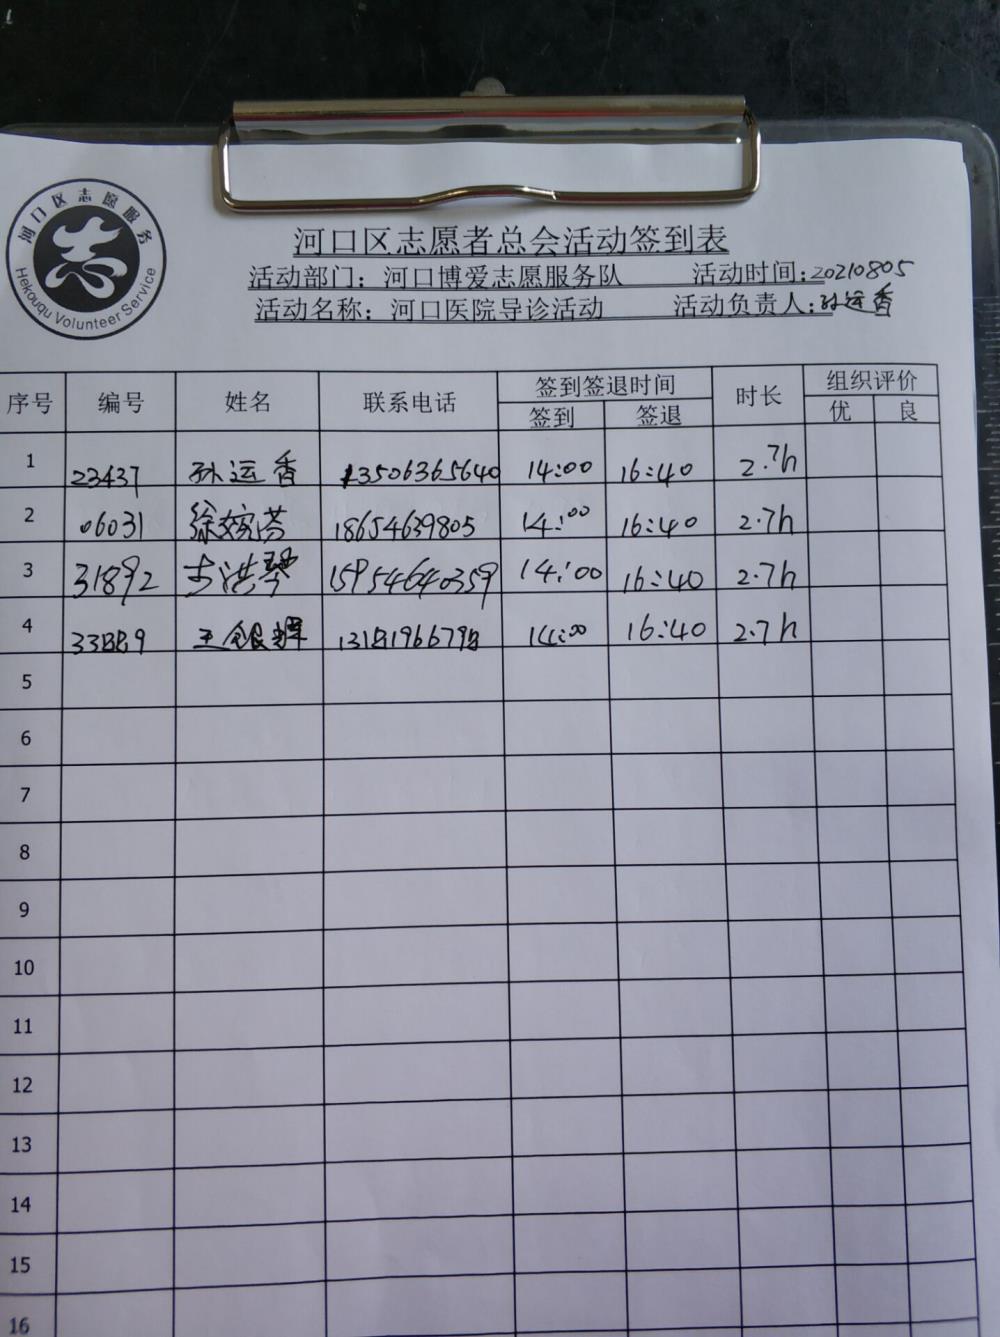 河口区志愿服务
Hekouqu Volunteer Service
河口区志愿者总会活动签到表
活动部门：河口博爱志愿服务队 活动时间:20210805
活动名称：河口医院导诊活动 活动负责人:孙运香
序号 编号 姓名 联系电话 签到签退时间 时长 组织评价
签到 签退 优 良
1 23437 孙运香 13506365640 14:00 16:40 2.7h
2 06031 徐婉芸 18654639805 14:00 16:40 2.7h
3 31892 洪琴 15954640359 14:00 16:40 2.7h
4 王银辉 14:00 16:40 2.7h
5
6
7
8
9
10
11
12
13
14
15
16